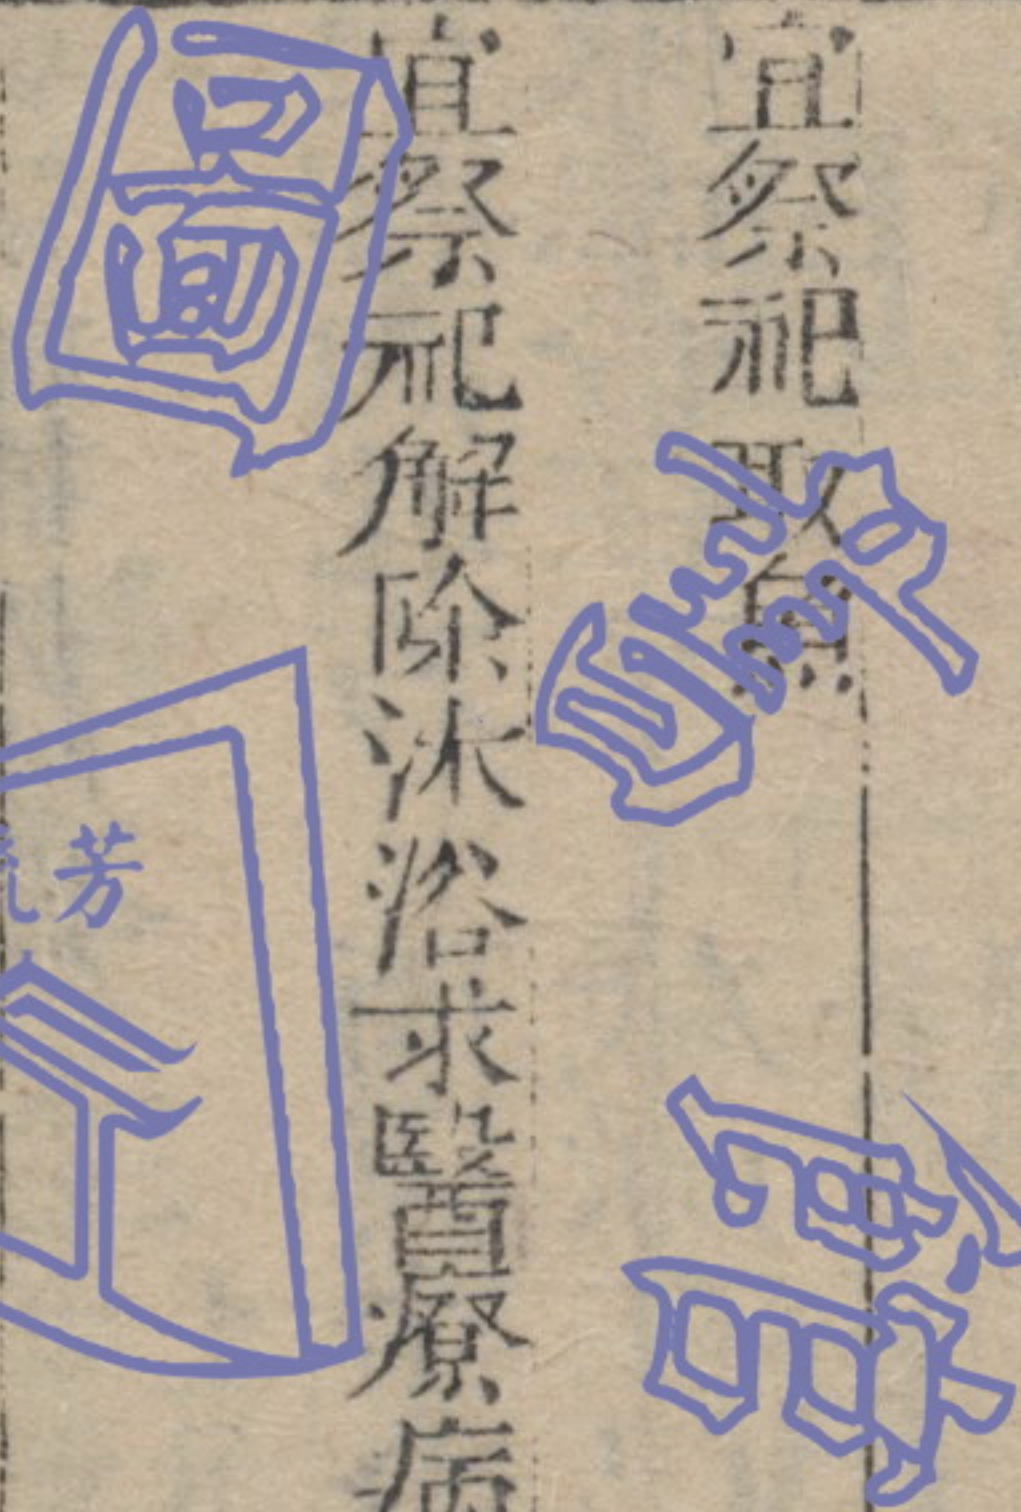 宜祭祀取魚
宜祭祀解除沐浴求醫療病
圖
書
館
芳